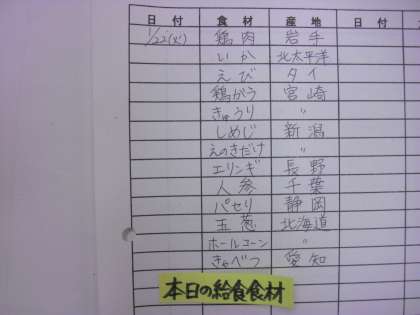 日付 食材 産地 日付
1/22(火) 鶏肉 岩手
いか 北太平洋
えび タイ
鶏がら 宮崎
きゅうり 〃
しめじ 新潟
えのきだけ 〃
エリンギ 長野
人参 千葉
パセリ 静岡
玉葱 北海道
ホールコーン 〃
きゃべつ 愛知
本日の給食食材